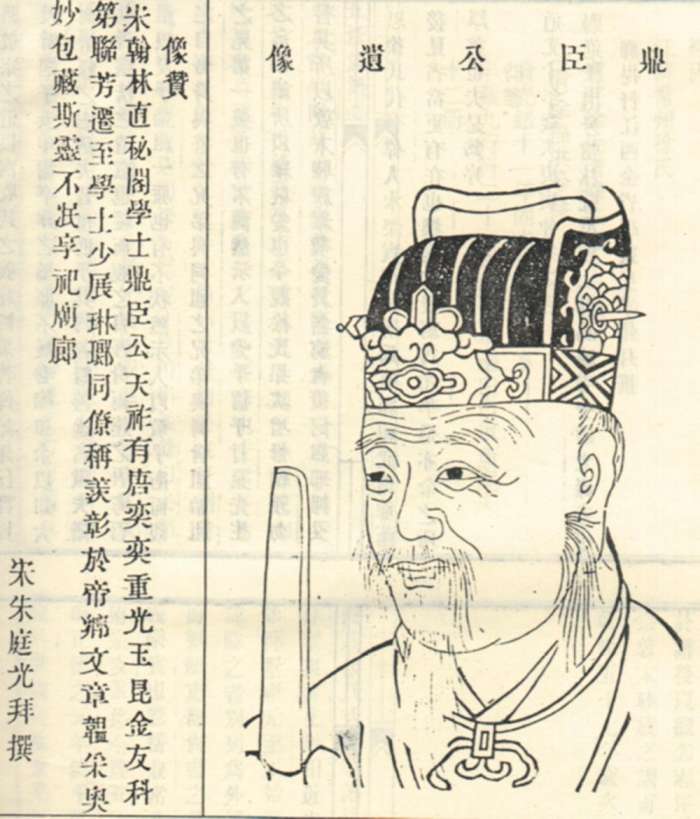 鼎臣公遺像
像賛
宋翰林直秘閣學士鼎臣公天祚有唐奕奕重光玉昆金友科
第聯芳遷至學士少展琳瑯同僚稱羨彰於帝鄉文章韞采奧
妙包藏斯靈不泯享祀廟廊
宋朱庭光拜撰